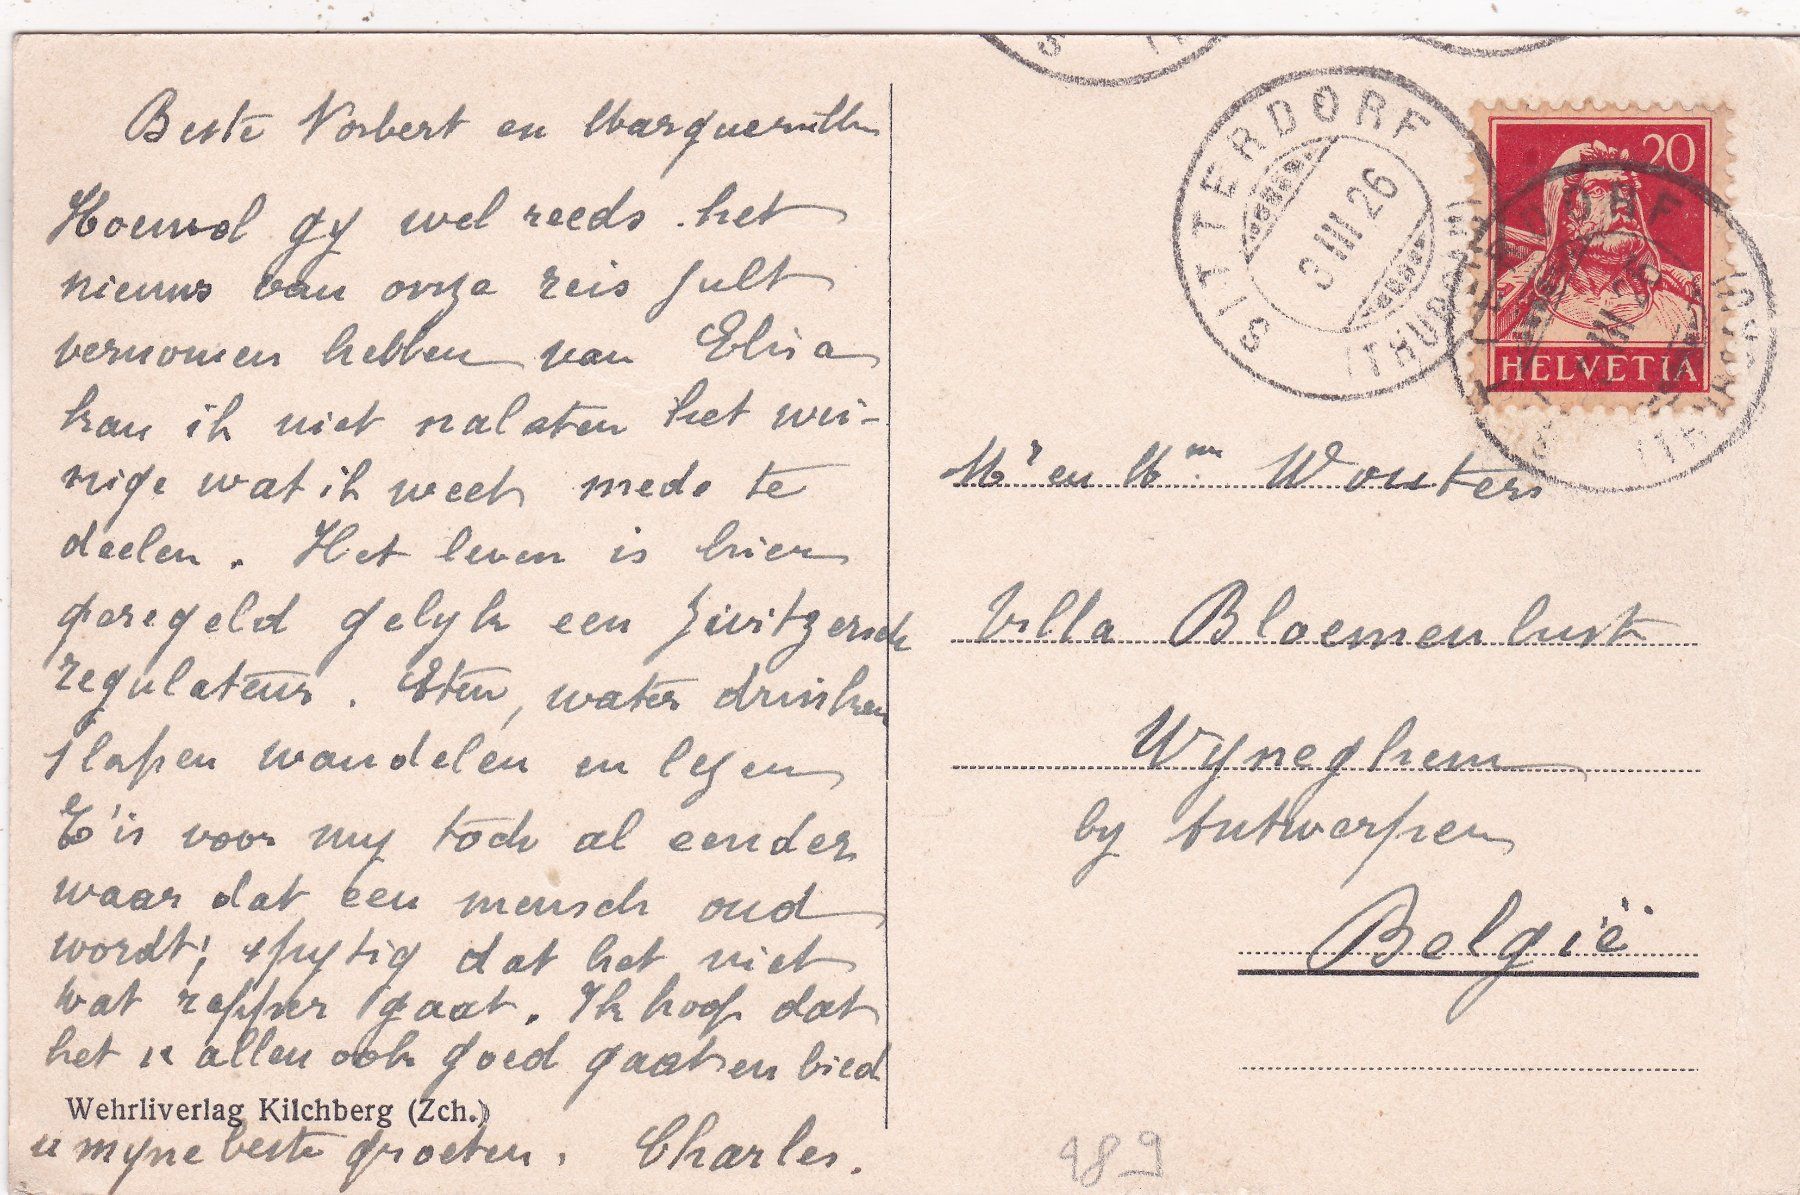 Beste Norbert en
Hoewel gy wel reeds het
nieuws van onze reis zult
vernomen hebben van Elisa
kan ik niet nalaten het wei-
nige wat ik weet mede te
deelen. Het leven is hier
geregeld gelyk een Zwitzersch
regulateur. Eten, water drinken
slapen wandelen en lezen
't is voor my toch al eender
waar dat een mensch oud
wordt; spytig dat het niet
wat rapper gaat. Ik hoop dat
het u allen ook goed gaat en bied
Wehrliverlag Kilchberg (Zch.)
u myne beste groeten. Charles.
SITTERDORF
3 III. 26
(THURGAU)
20
HELVETIA
Mr en Mme Wouters
Villa Bloemenlust
Wyneghem
by Antwerpen
België
989